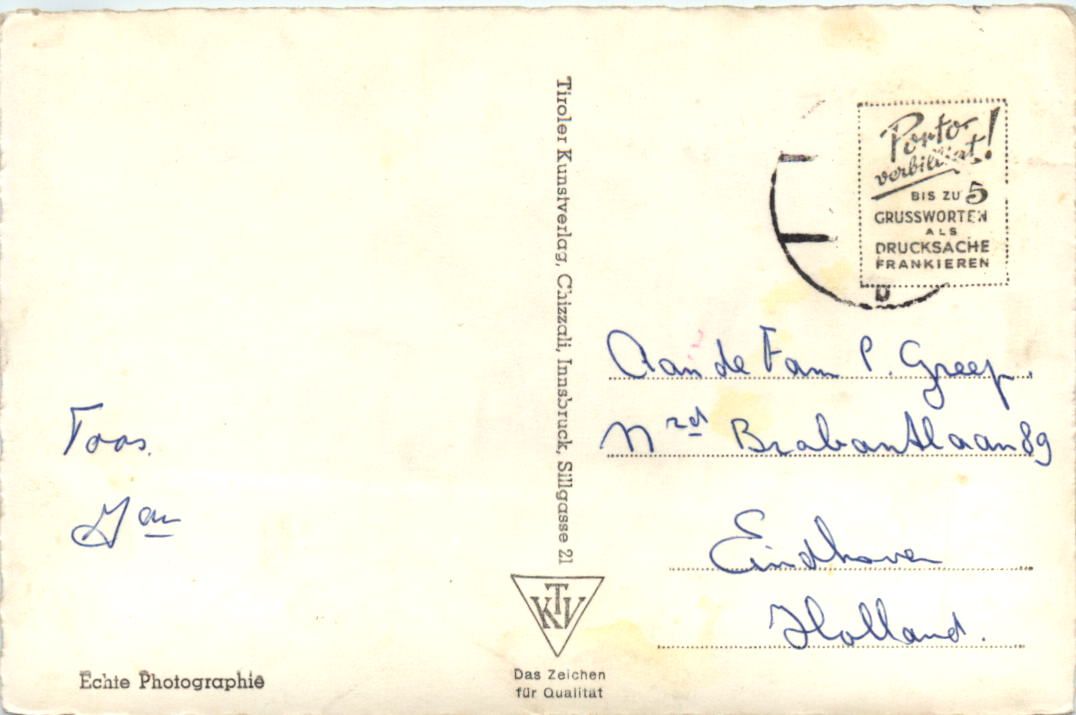 Toos.
Jan
Echte Photographie
Tiroler Kunstverlag, Chizzali, Innsbruck, Sillgasse 21
KTV
Das Zeichen
für Qualität
Porto-
verbilligt!
BIS ZU 5
GRUSSWORTEN
ALS
DRUCKSACHE
FRANKIEREN
Aan de Fam P. Greep.
Nrd Brabantlaan 89
Eindhoven
Holland.